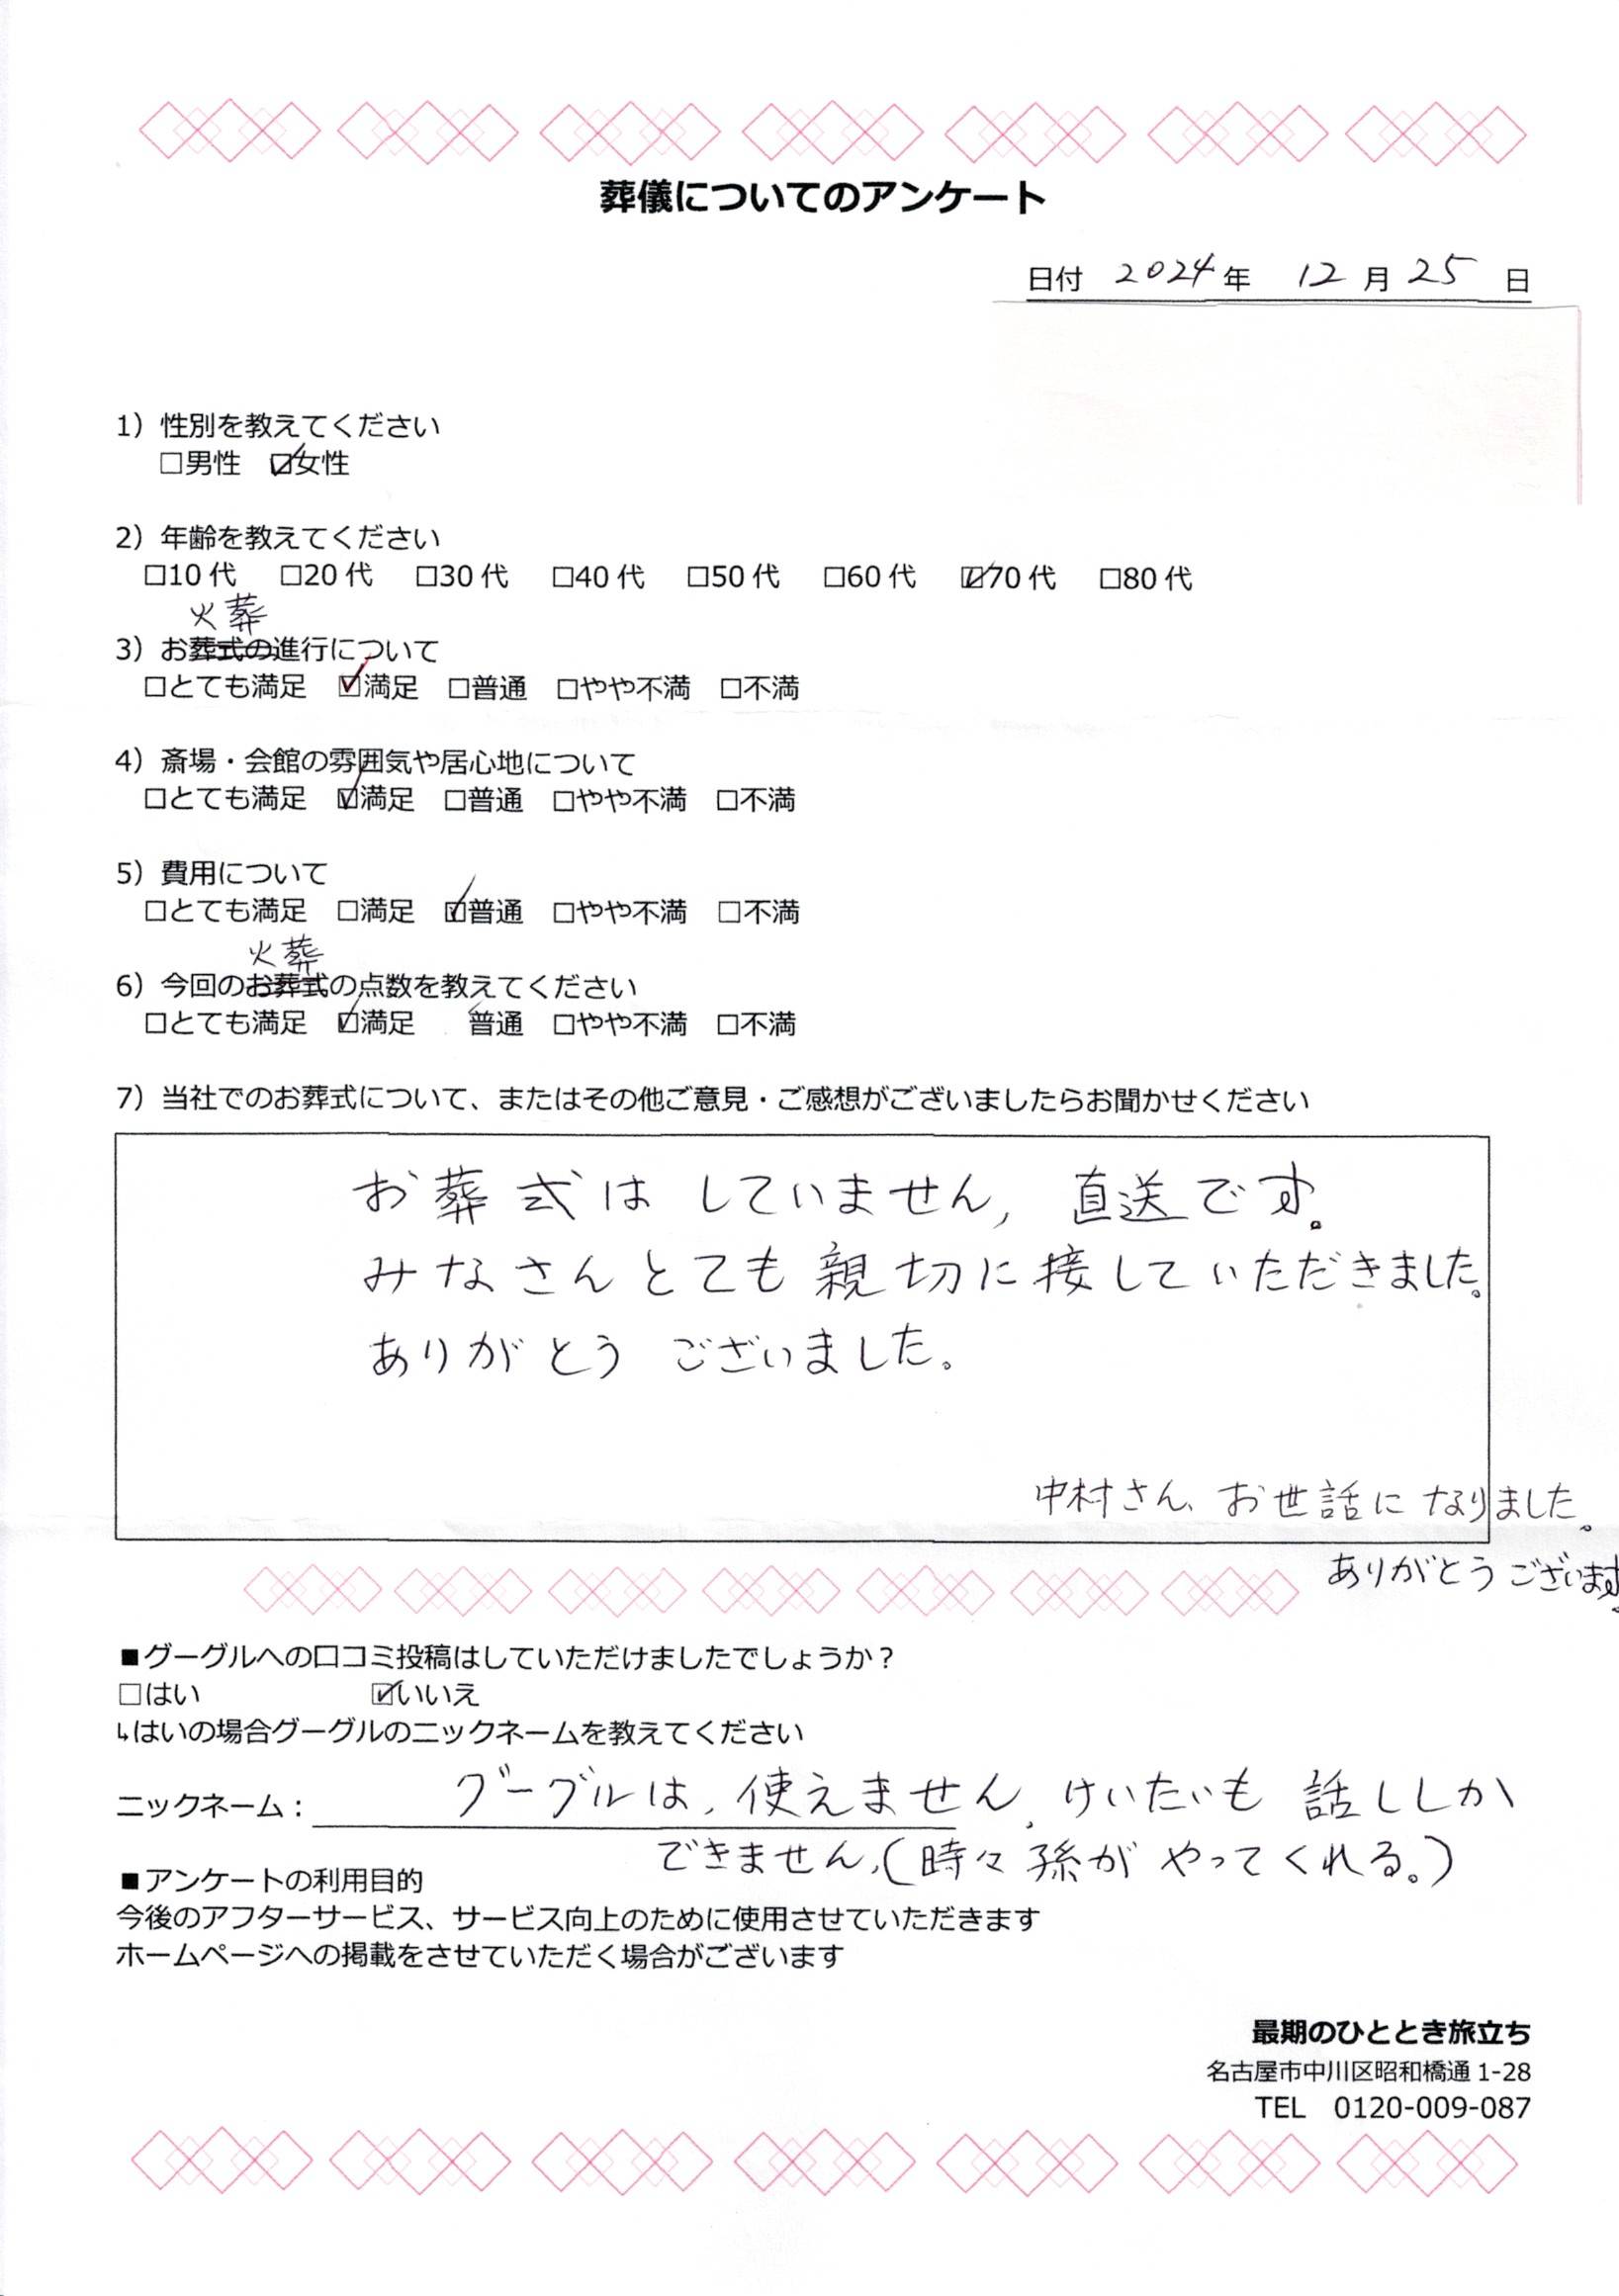 葬儀についてのアンケート
日付 2024年 12月25日
1）性別を教えてください
□男性 ☑女性
2）年齢を教えてください
□10代 □20代 □30代 □40代 □50代 □60代 ☑70代 □80代
火葬
3）お葬式の進行について
□とても満足 ☑満足 □普通 □やや不満 □不満
4）斎場・会館の雰囲気や居心地について
□とても満足 ☑満足 □普通 □やや不満 □不満
5）費用について
□とても満足 □満足 ☑普通 □やや不満 □不満
火葬
6）今回のお葬式の点数を教えてください
□とても満足 ☑満足 普通 □やや不満 □不満
7）当社でのお葬式について、またはその他ご意見・ご感想がございましたらお聞かせください
お葬式はしていません、直送です。
みなさんとても親切に接していただきました。
ありがとうございました。
中村さん、お世話になりました。
ありがとうございます。
■グーグルへの口コミ投稿はしていただけましたでしょうか？
□はい ☑いいえ
↳はいの場合グーグルのニックネームを教えてください
ニックネーム： グーグルは、使えません、けいたいも話ししか
できません、（時々孫がやってくれる。）
■アンケートの利用目的
今後のアフターサービス、サービス向上のために使用させていただきます
ホームページへの掲載をさせていただく場合がございます
最期のひととき旅立ち
名古屋市中川区昭和橋通1-28
TEL 0120-009-087